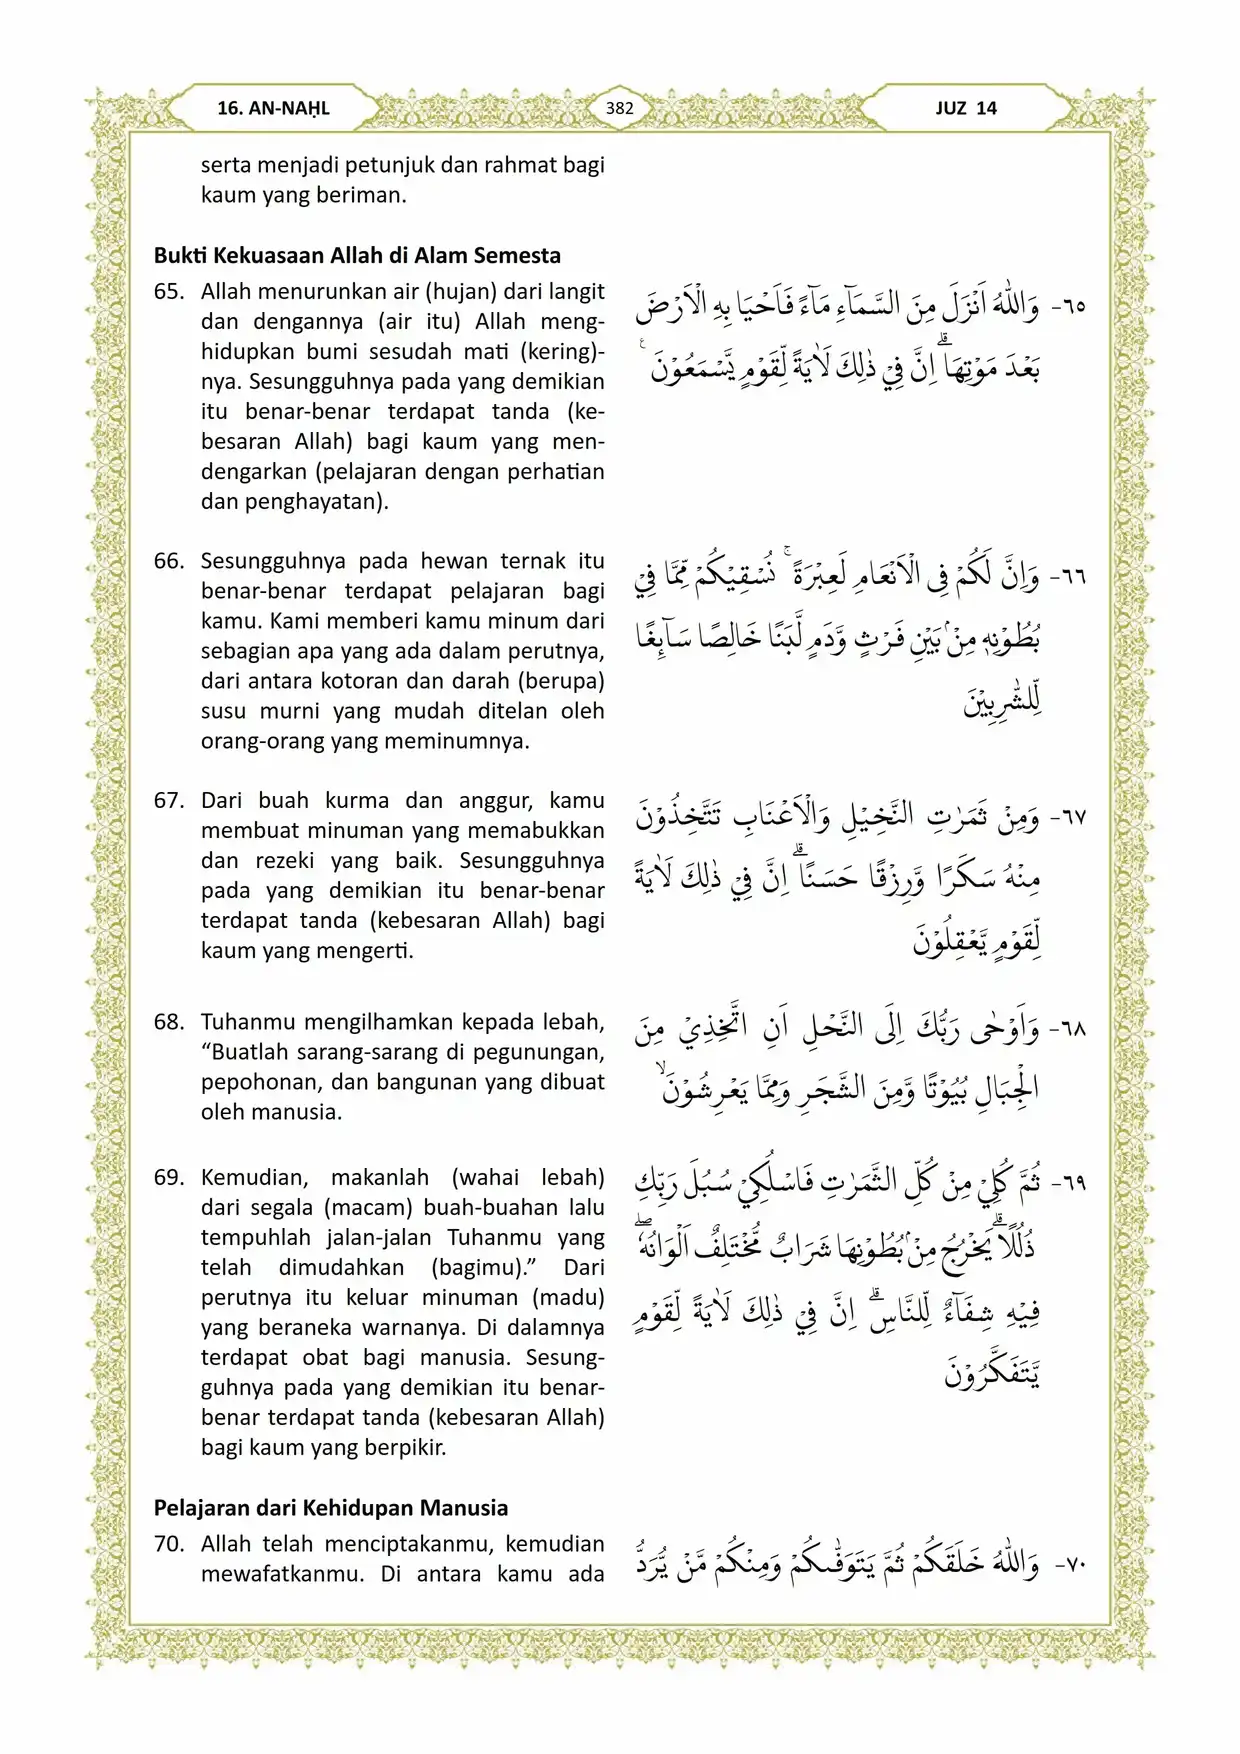 16. AN-NAḤL
382
JUZ 14
serta menjadi petunjuk dan rahmat bagi
kaum yang beriman.
Bukti Kekuasaan Allah di Alam Semesta
65. Allah menurunkan air (hujan) dari langit
dan dengannya (air itu) Allah meng-
hidupkan bumi sesudah mati (kering)-
nya. Sesungguhnya pada yang demikian
itu benar-benar terdapat tanda (ke-
besaran Allah) bagi kaum yang men-
dengarkan (pelajaran dengan perhatian
dan penghayatan).
٦٥- وَاللّٰهُ اَنْزَلَ مِنَ السَّمَاۤءِ مَاۤءً فَاَحْيَا بِهِ الْاَرْضَ
بَعْدَ مَوْتِهَاۗ اِنَّ فِيْ ذٰلِكَ لَاٰيَةً لِّقَوْمٍ يَّسْمَعُوْنَ ࣖ
66. Sesungguhnya pada hewan ternak itu
benar-benar terdapat pelajaran bagi
kamu. Kami memberi kamu minum dari
sebagian apa yang ada dalam perutnya,
dari antara kotoran dan darah (berupa)
susu murni yang mudah ditelan oleh
orang-orang yang meminumnya.
٦٦- وَاِنَّ لَكُمْ فِى الْاَنْعَامِ لَعِبْرَةًۚ نُسْقِيْكُمْ مِّمَّا فِيْ
بُطُوْنِهٖ مِنْۢ بَيْنِ فَرْثٍ وَّدَمٍ لَّبَنًا خَالِصًا سَاۤىِٕغًا
لِّلشّٰرِبِيْنَ
67. Dari buah kurma dan anggur, kamu
membuat minuman yang memabukkan
dan rezeki yang baik. Sesungguhnya
pada yang demikian itu benar-benar
terdapat tanda (kebesaran Allah) bagi
kaum yang mengerti.
٦٧- وَمِنْ ثَمَرٰتِ النَّخِيْلِ وَالْاَعْنَابِ تَتَّخِذُوْنَ
مِنْهُ سَكَرًا وَّرِزْقًا حَسَنًاۗ اِنَّ فِيْ ذٰلِكَ لَاٰيَةً
لِّقَوْمٍ يَّعْقِلُوْنَ
68. Tuhanmu mengilhamkan kepada lebah,
“Buatlah sarang-sarang di pegunungan,
pepohonan, dan bangunan yang dibuat
oleh manusia.
٦٨- وَاَوْحٰى رَبُّكَ اِلَى النَّحْلِ اَنِ اتَّخِذِيْ مِنَ
الْجِبَالِ بُيُوْتًا وَّمِنَ الشَّجَرِ وَمِمَّا يَعْرِشُوْنَۙ
69. Kemudian, makanlah (wahai lebah)
dari segala (macam) buah-buahan lalu
tempuhlah jalan-jalan Tuhanmu yang
telah dimudahkan (bagimu).” Dari
perutnya itu keluar minuman (madu)
yang beraneka warnanya. Di dalamnya
terdapat obat bagi manusia. Sesung-
guhnya pada yang demikian itu benar-
benar terdapat tanda (kebesaran Allah)
bagi kaum yang berpikir.
٦٩- ثُمَّ كُلِيْ مِنْ كُلِّ الثَّمَرٰتِ فَاسْلُكِيْ سُبُلَ رَبِّكِ
ذُلُلًاۗ يَخْرُجُ مِنْۢ بُطُوْنِهَا شَرَابٌ مُّخْتَلِفٌ اَلْوَانُهٗۖ
فِيْهِ شِفَاۤءٌ لِّلنَّاسِۗ اِنَّ فِيْ ذٰلِكَ لَاٰيَةً لِّقَوْمٍ
يَّتَفَكَّرُوْنَ
Pelajaran dari Kehidupan Manusia
70. Allah telah menciptakanmu, kemudian
mewafatkanmu. Di antara kamu ada
٧٠- وَاللّٰهُ خَلَقَكُمْ ثُمَّ يَتَوَفّٰىكُمْ وَمِنْكُمْ مَّنْ يُّرَدُّ